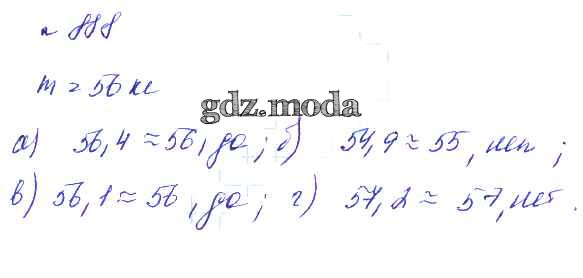 № 888
m = 56 кг
gdz.moda
а) 56,4 ≈ 56, да; б) 54,9 ≈ 55, нет;
в) 56,1 ≈ 56, да; г) 57,2 ≈ 57, нет.